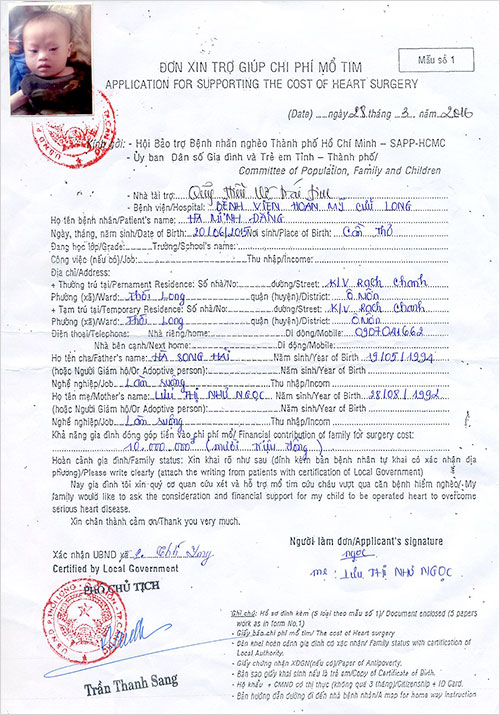 Mẫu số 1
ĐƠN XIN TRỢ GIÚP CHI PHÍ MỔ TIM
APPLICATION FOR SUPPORTING THE COST OF HEART SURGERY
(Date) ....ngày 28 tháng ..3.. năm 2016
Kính gởi: - Hội Bảo trợ Bệnh nhân nghèo Thành phố Hồ Chí Minh – SAPP-HCMC
- Ủy ban Dân số Gia đình và Trẻ em Tỉnh – Thành phố/
Committee of Population, Family and Children
- Nhà tài trợ:
- Bệnh viện/Hospital: BỆNH VIỆN HOÀN MỸ CỬU LONG
Họ tên bệnh nhân/Patient's name: HÀ MINH ĐĂNG
Ngày, tháng, năm sinh/Date of Birth: 20/06/2015 Nơi sinh/Place of Birth: Cần Thơ
Đang học lớp/Grade: Trường/School's name:
Công việc (nếu có)/Job: Thu nhập/Income:
Địa chỉ/Address:
+ Thường trú tại/Permanent Residence: Số nhà/No: đường/Street: K/V Rạch Chanh
Phường (xã)/Ward: Thới Long quận (huyện)/District: Ô Môn
+ Tạm trú tại/Temporary Residence: Số nhà/No: đường/Street: K/V Rạch Chanh
Phường (xã)/Ward: Thới Long quận (huyện)/District: Ô Môn
Điện thoại/Telephone: Nhà riêng/home: Di động/Mobile: 0907041662
Nhà bên cạnh/Next home: Di động/Mobile:
Họ tên cha/Father's name: HÀ SONG HẢI Năm sinh/Year of Birth 19/05/1994
(hoặc Người Giám hộ/Or Adoptive person): Năm sinh/Year of Birth
Nghề nghiệp/Job Làm ruộng Thu nhập/Incom
Họ tên mẹ/Mother's name: LƯU THỊ NHƯ NGỌC Năm sinh/Year of Birth 28/08/1992
(hoặc Người Giám hộ/Or Adoptive person): Năm sinh/Year of Birth
Nghề nghiệp/Job Làm ruộng Thu nhập/Incom
Khả năng gia đình đóng góp tiền vào chi phí mổ/ Financial contribution of family for surgery cost:
10.000.000đ (mười triệu đồng)
Hoàn cảnh gia đình/Family status: Xin khai rõ như sau (đính kèm bản bệnh nhân tự khai có xác nhận địa
phương)/Please write clearly (attach the writing from patients with certification of Local Government)
Nay gia đình tôi xin quý cơ quan cứu xét và hỗ trợ mổ tim cứu cháu vượt qua căn bệnh hiểm nghèo/ My
family would like to ask the consideration and financial support for my child to be operated heart to overcome
serious heart disease.
Xin chân thành cảm ơn/Thank you very much.
Người làm đơn/Applicant's signature
Ngọc
mẹ: LƯU THỊ NHƯ NGỌC
Xác nhận UBND
Certified by Local Government
PHÓ CHỦ TỊCH
Trần Thanh Sang
Ghi chú: Hồ sơ đính kèm (5 loại theo mẫu số 1)/ Document enclosed (5 papers
work as in form No.1)
- Giấy báo chi phí mổ tim/ The cost of Heart surgery
- Bản khai hoàn cảnh gia đình có xác nhận/ Family status with certification of
Local Authority.
- Giấy chứng nhận XĐGN(nếu có)/Paper of Antipoverty.
- Bản sao giấy khai sinh nếu là trẻ em/Copy of Certificate of Birth.
- Hộ khẩu + CMND có thị thực (không quá 3 tháng)/Citizenship + ID Card.
- Bản hướng dẫn đường đi đến nhà bệnh nhân/A map for home way instruction